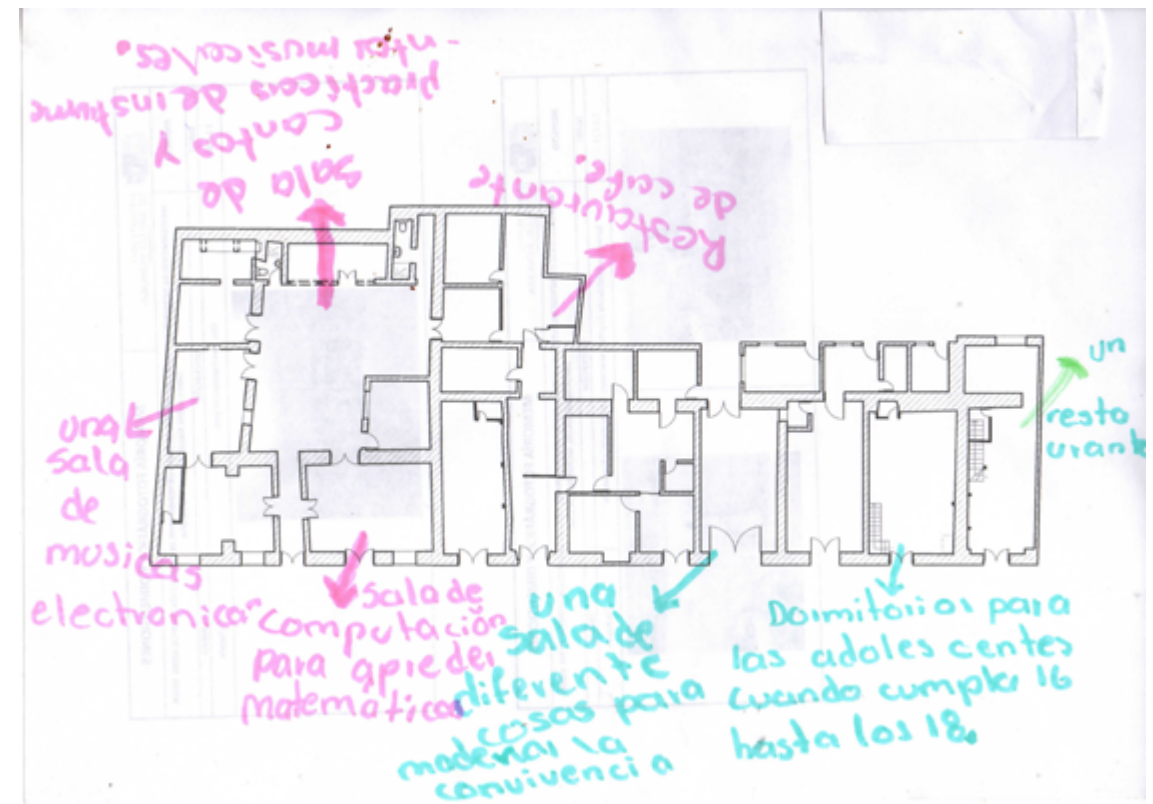 Sala de
cantos y
practicas de instrume
-ntos musicales.
Restaurante
de café.
un
resto
urante
una
sala
de
musicas
electronicas
Sala de
computación
para apreder
matematicas
una
sala de
diferente
cosas para
la
convivencia
Dormitorios para
las adolescentes
cuando cumpla 16
hasta los 18.